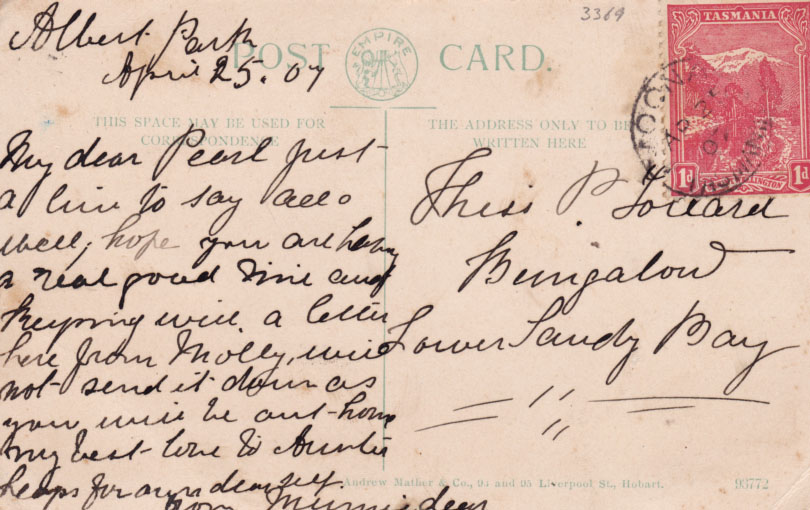 3369
TASMANIA
Albert Park
April 25. 07
POST CARD.
EMPIRE
THIS SPACE MAY BE USED FOR
CORRESPONDENCE
THE ADDRESS ONLY TO BE
WRITTEN HERE
1d 1d
My dear Pearl just
a line to say all
well, hope you are having
a real good time and
keeping well a letter
here from Molly, will
not send it down as
you will be out home
my best love to Auntie
heaps for own dear self.
from Mummie dear
Miss P. Pollard
Bungalow
Lower Sandy Bay
Andrew Mather & Co., 93 and 95 Liverpool St., Hobart.
93772